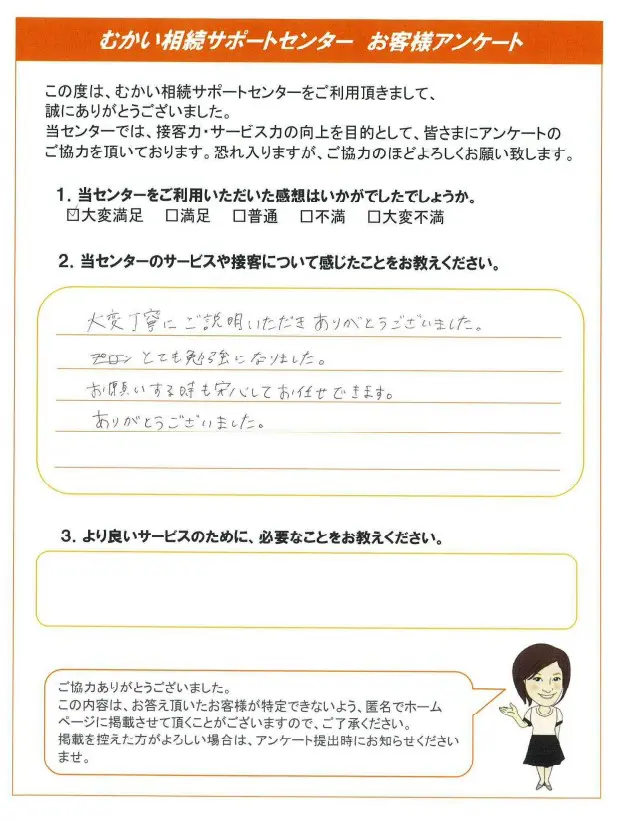 むかい相続サポートセンター お客様アンケート
この度は、むかい相続サポートセンターをご利用頂きまして、
誠にありがとうございました。
当センターでは、接客力・サービス力の向上を目的として、皆さまにアンケートの
ご協力を頂いております。恐れ入りますが、ご協力のほどよろしくお願い致します。
1. 当センターをご利用いただいた感想はいかがでしたでしょうか。
☑大変満足 □満足 □普通 □不満 □大変不満
2. 当センターのサービスや接客について感じたことをお教えください。
大変丁寧にご説明いただきありがとうございました。
とても勉強になりました。
お願いする時も安心してお任せできます。
ありがとうございました。
3. より良いサービスのために、必要なことをお教えください。
ご協力ありがとうございました。
この内容は、お答え頂いたお客様が特定できないよう、匿名でホーム
ページに掲載させて頂くことがございますので、ご了承ください。
掲載を控えた方がよろしい場合は、アンケート提出時にお知らせください
ませ。